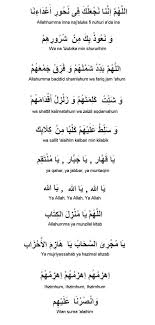 اَللّٰهُمَّ إِنَّا نَجْعَلُكَ فِى نُحُوْرِ أَعْدَاءِنَا
Allahhumma inna naj'aluka fi nuhuri a'da ina
وَ نَعُوْذُ بِكَ مِنْ شُرُوْرِهِمْ
Wa na 'uzubika min shururihim
اَللّٰهُمَّ بَدِّدْ شَمْلَهُمْ وَ فَرِّقْ جَمْعَهُمْ
Allahumma baddid shamlahum wa farriq jam 'ahum
وَ شَتِّتْ كَلِمَتَهُمْ وَ زَلْزِلْ أَقْدَامَهُمْ
wa shattit kalimatahum wa zalzil aqdamahum
وَ سَلِّطْ عَلَيْهِمْ كَلْبًا مِنْ كِلَابِكَ
wa sallit 'alaihim kalban min kilabik
يَا قَهَّارُ ، يَا جَبَّارُ ، يَا مُنْتَقِمُ
ya qahar, ya jabbar, ya muntaqim
يَا اَللّٰه ، يَا اَللّٰه ، يَا اَللّٰه
Ya Allah, Ya Allah, Ya Allah
اَللّٰهُمَّ يَا مُنْزِلَ الْكِتَابِ
Allahumma ya munzilal kitab
يَا مُجْرِيَ السَّحَابِ يَا هَازِمَ الْأَحْزَابِ
Ya mujriyassahab ya hazimal ahzab
اِهْزِمْهُمْ اِهْزِمْهُمْ اِهْزِمْهُمْ
Ihzimhum, Ihzimhum, Ihzimhum
وَانْصُرْنَا عَلَيْهِمْ
Wan surna 'alaihim